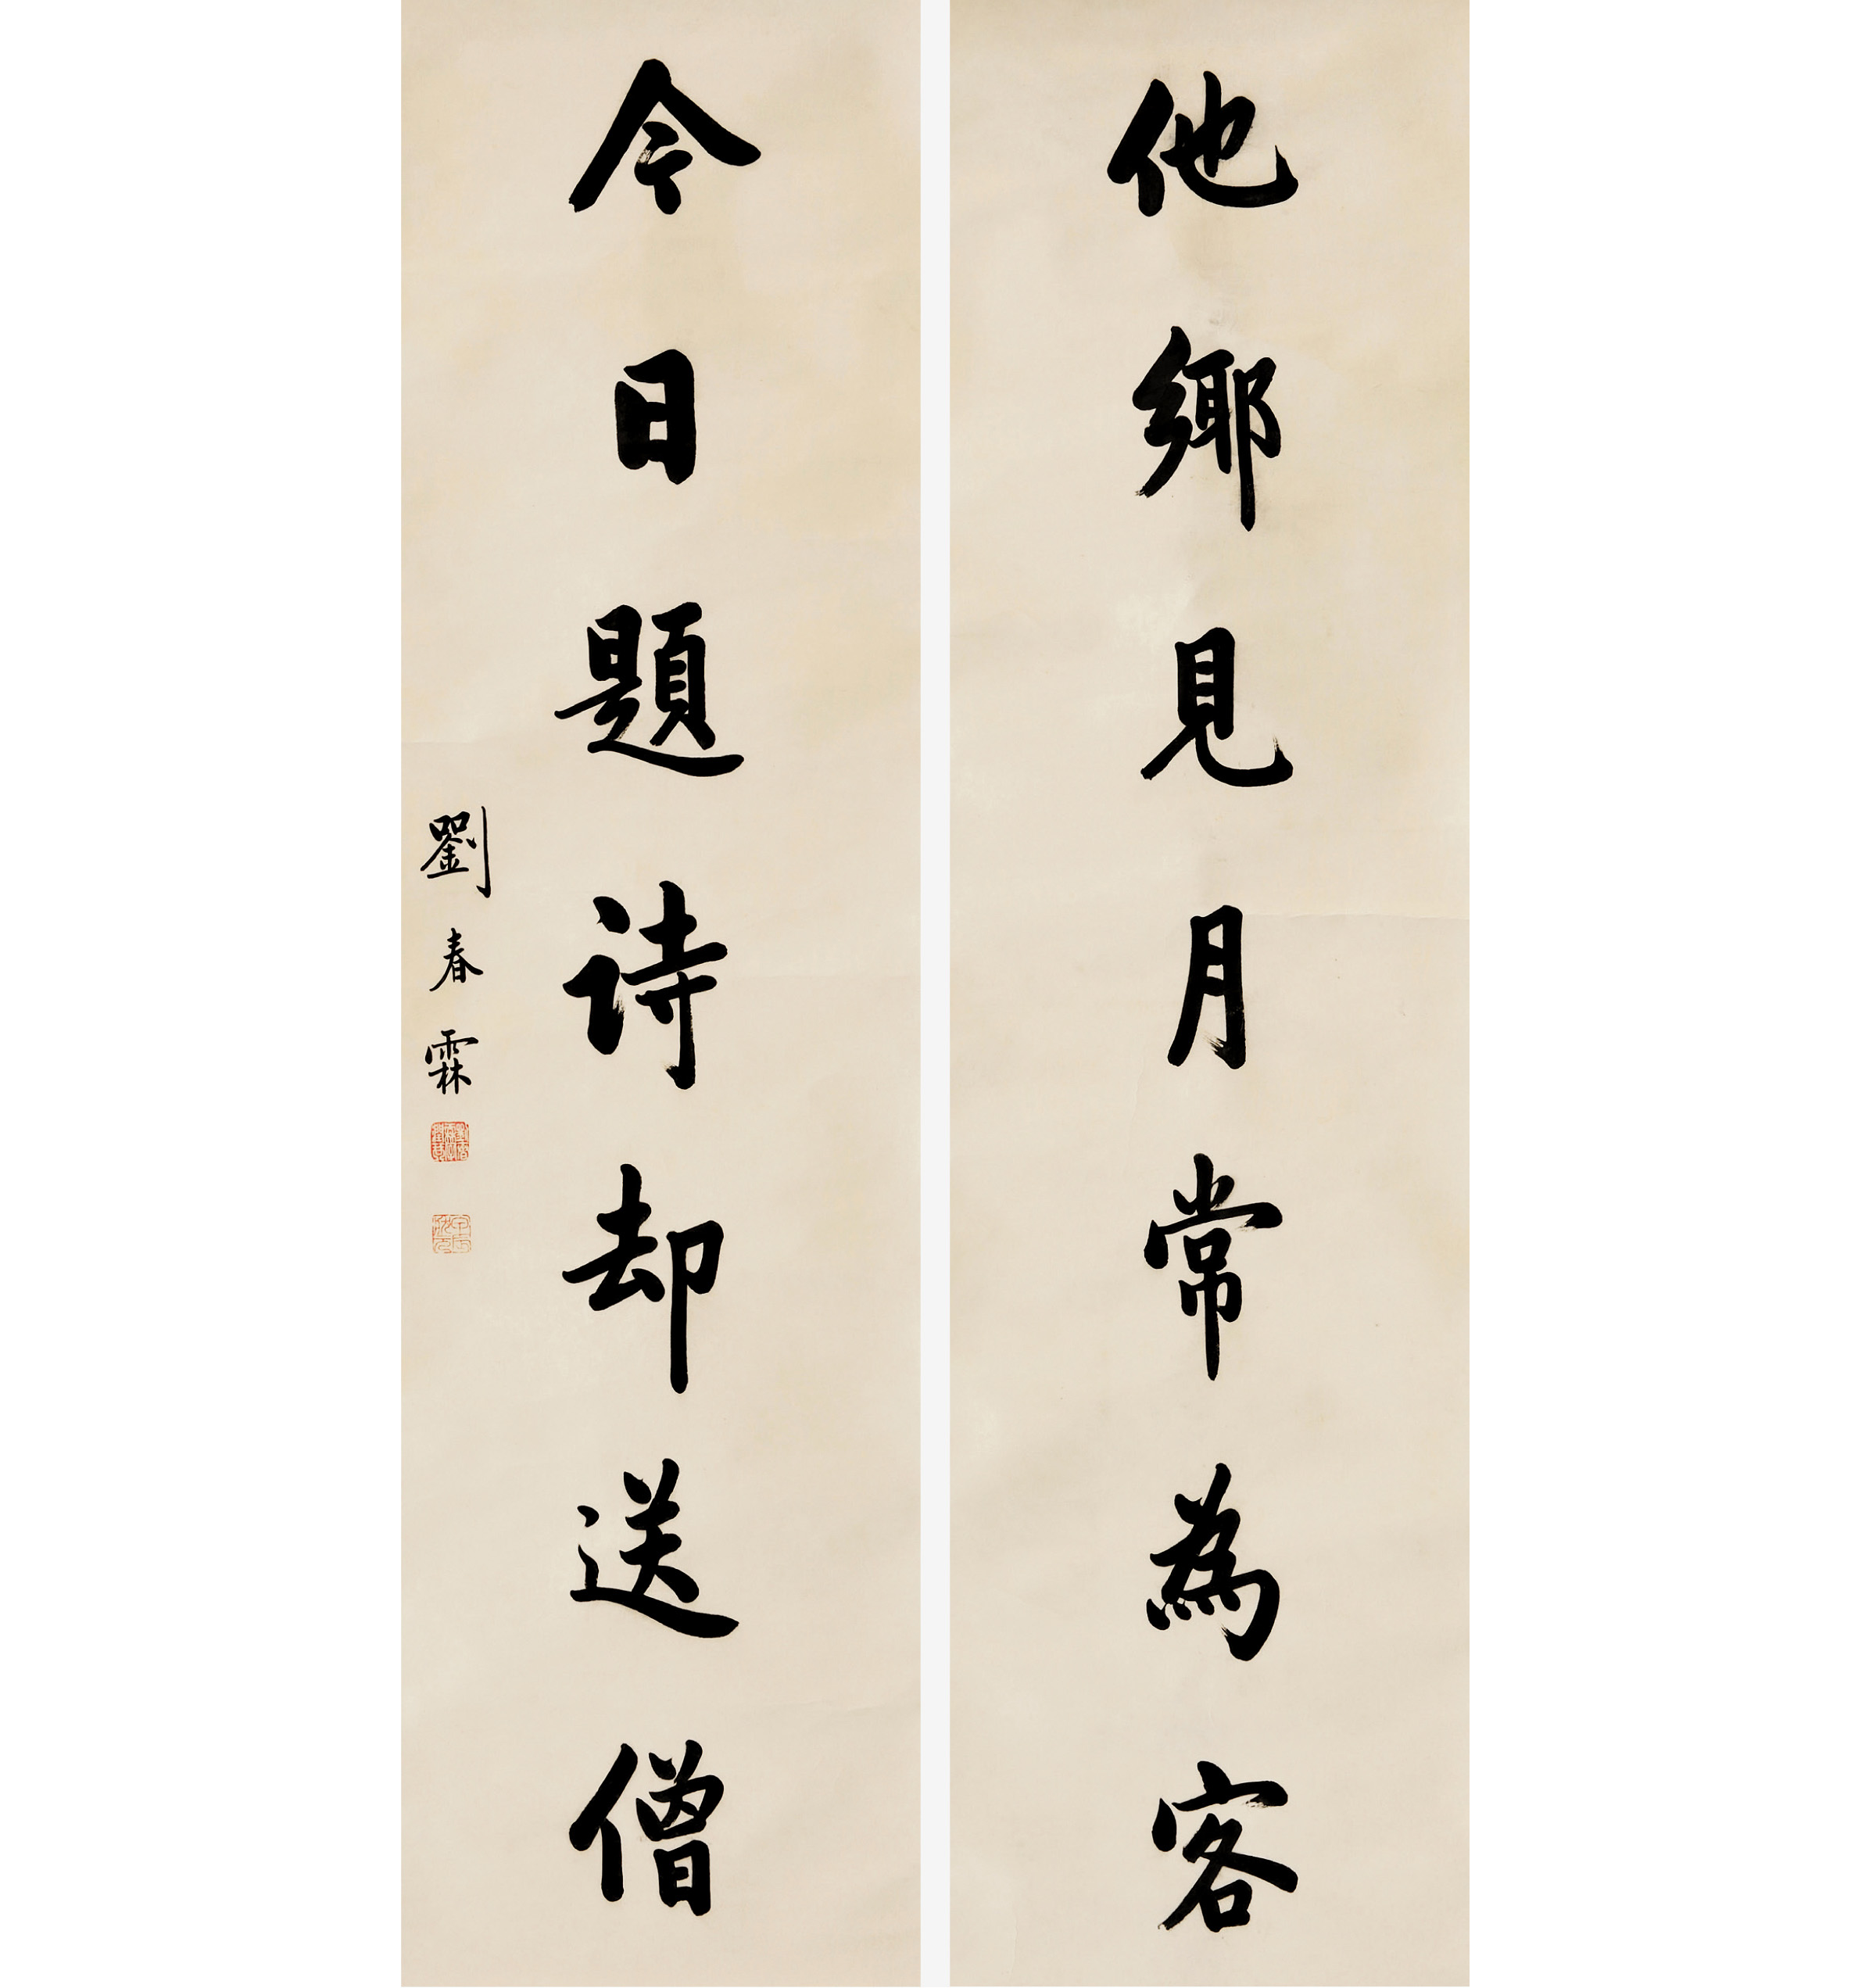 他鄉見月常為客
今日題诗却送僧
劉春霖